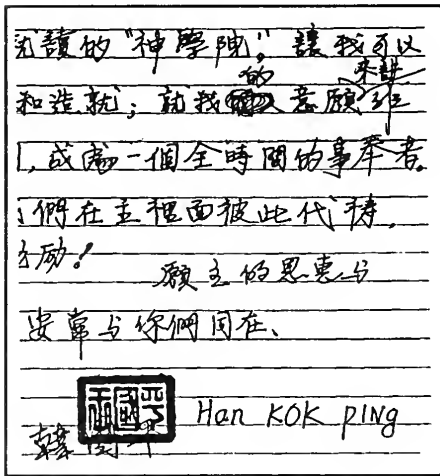 讀的“神學院”，讓我可以
和造就；就我的意願來說
，成為一個全時間的事奉者。
們在主裡面彼此代禱，
励！
願主的恩惠与
安常与你們同在、
Han KOK PING
韓國平